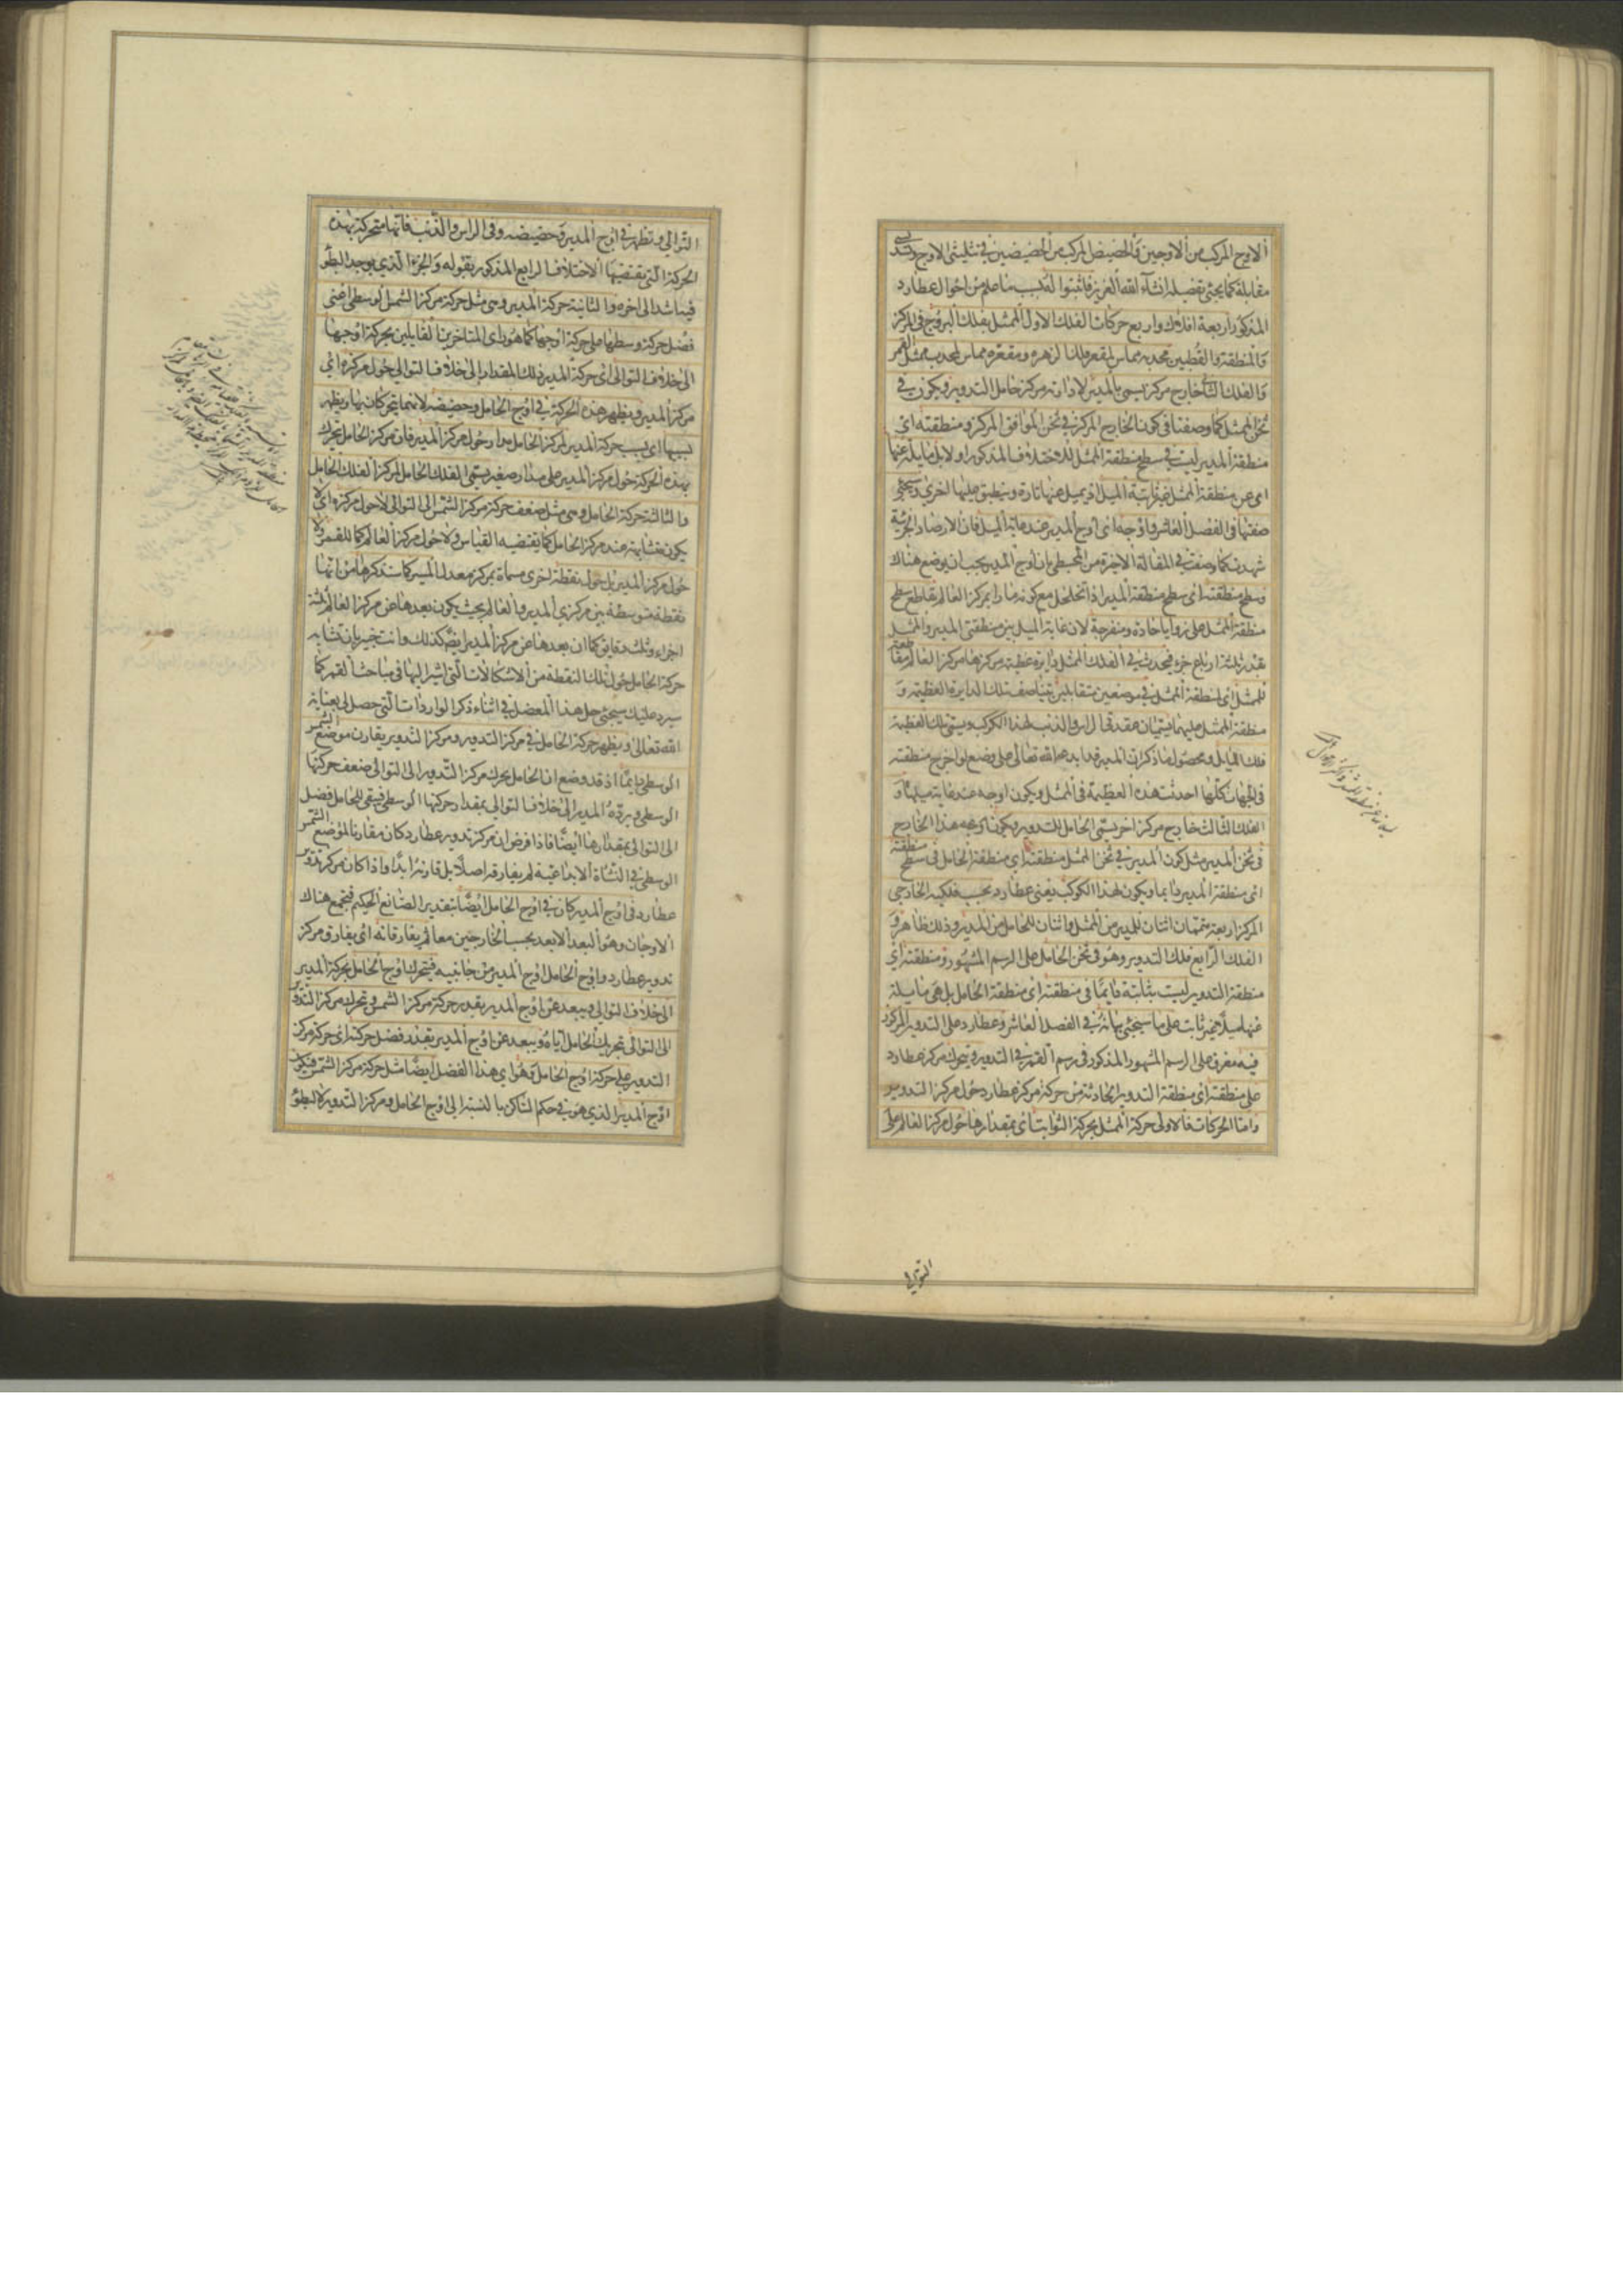 الاوج المركب من الاوجين والحضيض المركب من الحضيضين في تثليثي الاوج
مقابلة كما يجئ تفصيله انشآء الله العزيز فاثبتوا له بسبب ما علم من احوال عطارد
المذكور اربعة افلاك واربع حركات الفلك الاول الممثل بفلك البروج في المركز
والمنطقة والقطبين محدبه مماس لمقعر فلك الزهره ومقعره مماس لمحدب ممثل القمر
والفلك الثاني خارج مركز يسمى بالمدير لادارته مركز حامل التدوير ويكون في
ثخن الممثل كما وصفنا في كون الخارج المركز في ثخن الموافق المركز ومنطقته اي
منطقة المدير ليست في سطح منطقة الممثل للاختلاف المذكور اولا بل مايلة عنها
اي عن منطقة الممثل غير ثابتة الميل اذ يميل عنها تارة وينطبق عليها اخرى وسيجئ
صفتها في الفصل العاشر واوجه اي اوج المدير عند غاية الميل فان الارصاد الجزئية
شهدت كما وصفت في المقالة الاخيرة من المجسطي بان اوج المدير يجب ان يوضع هناك
وسطح منطقته اي سطح منطقة المدير اذا تخلخل مع كونه مارا بمركز العالم يقاطع سطح
منطقة الممثل على زوايا حادة ومنفرجة لان غاية الميل بين منطقتي المدير والممثل
بقدر ثلثة ارباع جزء فيحدث في الفلك الممثل دايرة عظيمة مركزها مركز العالم مقاطعة
للممثل اي لمنطقة الممثل في موضعين متقابلين يتناصف تلك الدايرة العظيمة و
منطقة الممثل عليهما يسميان عقدتي الراس والذنب لهذا الكوكب ويسمى تلك العظيمة
فلك المايل ومحصول ما ذكر ان المدير قد ابدعه الله تعالى على وضع لو اخرج منطقته
في الجهات كلها احدثت هذه العظيمة في الممثل ويكون اوجه عند غاية ميلها و
الفلك الثالث خارج مركز اخر يسمى الحامل للتدوير ويكون كرة هذا الخارج
في ثخن المدير مثل كون المدير في ثخن الممثل منطقته اي منطقة الحامل في سطح منطقته
اي منطقة المدير دايما ويكون لهذا الكوكب يعني عطارد بحسب فلكيه الخارجي
المركز اربعة متممات اثنتان للمدير من الممثل واثنتان للحامل من المدير وذلك ظاهر و
الفلك الرابع فلك التدوير وهو في ثخن الحامل على الرسم المشهور ومنطقته اي
منطقة التدوير ليست بثابتة دايما في منطقته اي منطقة الحامل بل هي مايلة
عنها ميلا غير ثابت على ما سيجئ بيانه في الفصل العاشر وعطارد على التدوير المركوز
فيه مغرق على الرسم المشهور المذكور في رسم القمر في التدوير ويتحرك مركز عطارد
على منطقته اي منطقة التدوير الحادثة من حركة مركز عطارد حول مركز التدوير
واما الحركات فالاولى حركة الممثل بحركة الثوابت اي بمقدارها حول مركز العالم على
التوالي
التوالي وتظهر في اوج المدير وحضيضه وفي الراس والذنب فانها متحركة بهذه
الحركة التي يقتضيها الاختلاف الرابع المذكور بقوله والجزء الذي يوجد البطؤ
فيه اشد الى اخره والثانية حركة المدير وهي مثل حركة مركز الشمس الوسطى اعني
فضل حركة وسطها على حركة اوجها كما هو راي المتاخرين القايلين بحركة اوجها
الى خلاف التوالي اي حركة المدير ذلك المقدار الى خلاف التوالي حول مركزه اي
مركز المدير ويظهر هذه الحركة في اوج الحامل وحضيضه لانهما يتحركان بها ويظهر
بسببها اي بسبب حركة المدير لمركز الحامل مدار حول مركز المدير فان مركز الحامل يتحرك
بهذه الحركة حول مركز المدير على مدار صغير يسمى الفلك الحامل لمركز الفلك الحامل
والثالثة حركة الحامل وهي مثل ضعف حركة مركز الشمس الى التوالي لا حول مركزه اي لا
يكون متشابهة عند مركز الحامل كما يقتضيه القياس ولا حول مركز العالم كما للقمر ولا
حول مركز المدير بل حول نقطة اخرى مسماة بمركز معدل المسير كما ستذكرها من انها
نقطة متوسطة بين مركزي المدير والعالم بحيث يكون بعدها عن مركز العالم ثلثة
اجزاء وثلث دقايق كما ان بعدها عن مركز المدير ايضا كذلك وانت خبير بان تشابه
حركة الحامل حول تلك النقطة من الاشكالات التي اشير اليها في مباحث القمر كما
سيرد عليك سيجئ حل هذا المعضل في اثناء ذكر الواردات التي حصل لي بعناية
الله تعالى ويظهر حركة الحامل في مركز التدوير ومركز التدوير يقارن موضع الشمس
الوسطى دايما اذ قد وضع ان الحامل يحرك مركز التدوير الى التوالي ضعف حركتها
الوسطى ويرده المدير الى خلاف التوالي بمقدار حركتها الوسطى فيبقى للحامل فضل
الى التوالي بمقدارها ايضا فاذا فرض ان مركز تدوير عطارد كان مقارنا لموضع الشمس
الوسطى في النشاة الابداعية لم يفارقه اصلا بل قارنه ابدا واذا كان مركز تدوير
عطارد في اوج المدير كان في اوج الحامل ايضا بتقدير الصانع الحكيم فيجتمع هناك
الاوجان وهو البعد الابعد بحسب الخارجين معا ثم يفارقانه اي يفارق مركز
تدوير عطارد واوج الحامل اوج المدير من جانبيه فيتحرك اوج الحامل بحركة المدير
الى خلاف التوالي ويبعد عن اوج المدير بقدر حركة مركز الشمس ويتحرك مركز التدوير
الى التوالي بتحريك الحامل اياه ويبعد عن اوج المدير بقدر فضل حركته اي حركة مركز
التدوير على حركة اوج الحامل وهو اي هذا الفضل ايضا مثل حركة مركز الشمس فيكون
اوج المدير الذي هو في حكم الساكن بالنسبة الى اوج الحامل ومركز التدوير لبطؤ